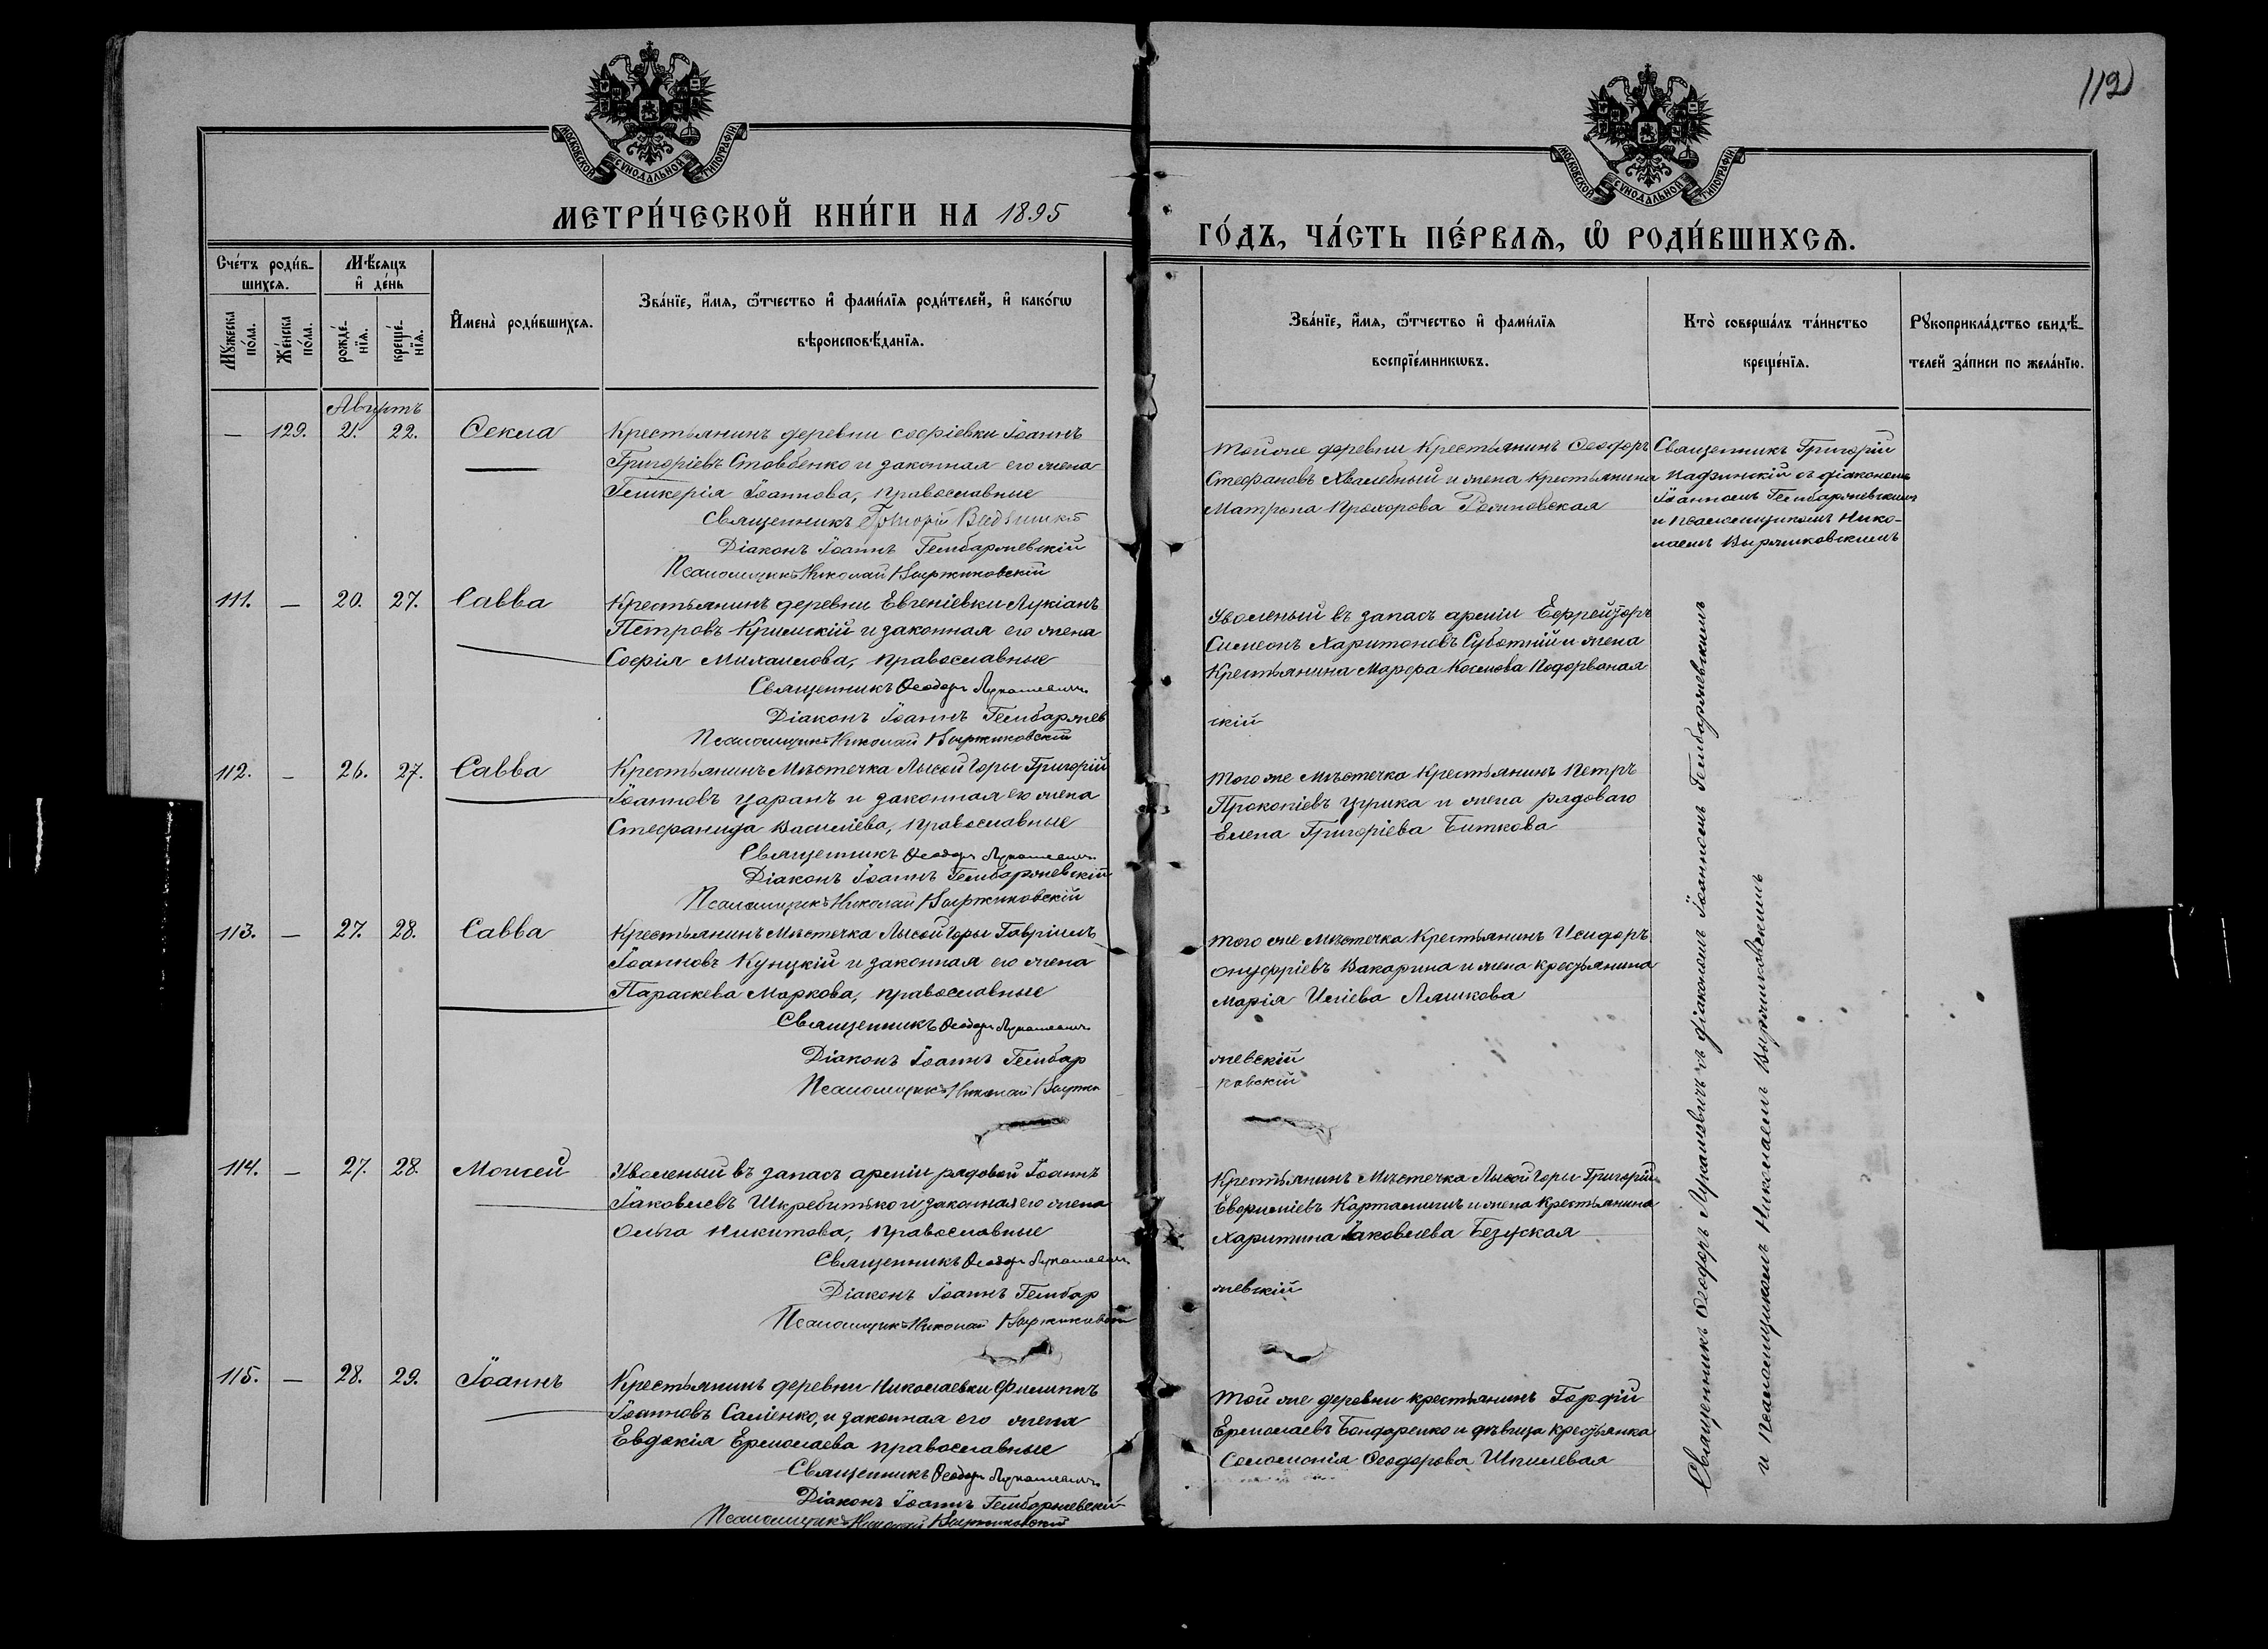 112
МОСКОВСКОЙ СѴНОДАЛЬНОЙ ТИПОГРАФІИ
МОСКОВСКОЙ СѴНОДАЛЬНОЙ ТИПОГРАФІИ
МЕТРИ́ЧЕСКОЙ КНИ́ГИ НА 1895
ГО́ДЪ, ЧА́СТЬ ПЕ́РВАѦ, Ѡ҆ РОДИ́ВШИХСѦ.
Сче́тъ роди́в-
шихсѧ.
Мѣ́сѧцъ
и҆ де́нь
Мꙋ́жеска по́ла.
Же́нска по́ла.
рожде́-
нїѧ.
креще́-
нїѧ.
И҆мена̀ роди́вшихсѧ.
Зва́нїе, и҆́мѧ, ѻ҆́тчество и҆ фами́лїѧ роди́телей, и҆ како́гѡ
вѣроисповѣ́данїѧ.
Зва́нїе, и҆́мѧ, ѻ҆́тчество и҆ фами́лїѧ
воспрїе́мникѡвъ.
Кто̀ соверша́лъ та́инство
креще́нїѧ.
Рꙋкоприкла́дство свидѣ́-
телей за́писи по жела́нїю.
Августъ
— 129. 21. 22. Ѳекла
Крестьянинъ деревни Софіевки Іоаннъ
Григоріевъ Стовбенко и законная его жена
Гликерія Іоаннова, православные
Священникъ Григорій
Діаконъ Іоаннъ Гембаржевскій
Псаломщикъ Николай Выржиковскій
Той же деревни Крестьянинъ Ѳеодоръ
Стефановъ Хвалебный и жена Крестьянина
Матрона Прохорова
Священникъ Григорій
съ діакономъ
Іоанномъ Гембаржевскимъ
и Псаломщикомъ Нико-
лаемъ Выржиковскимъ
111. — 20. 27. Савва
Крестьянинъ деревни Евгеніевки Лукіанъ
Петровъ Кримскій и законная его жена
Софія Михаилова, православные
Священникъ Ѳеодоръ Лукашевичъ
Діаконъ Іоаннъ Гембаржев
скій
Псаломщикъ Николай Выржиковскій
Уволеный въ запасъ арміи Ефрейторъ
Симеонъ Харитоновъ Суботній и жена
Крестьянина Марфа Космова Подорваная
112. — 26. 27. Савва
Крестьянинъ Мѣстечка Лысой Горы Григорій
Іоанновъ Царанъ и законная его жена
Стефанида Василіева, православные
Священникъ Ѳеодоръ Лукашевичъ
Діаконъ Іоаннъ Гембаржевскій
Псаломщикъ Николай Выржиковскій
Того же Мѣстечка Крестьянинъ Петръ
Прокопіевъ Цурика и жена рядоваго
Елена Григоріева Биткова
113. — 27. 28. Савва
Крестьянинъ Мѣстечка Лысой Горы Гавріилъ
Іоанновъ Куницкій и законная его жена
Параскева Маркова, православные
Священникъ Ѳеодоръ Лукашевичъ
Діаконъ Іоаннъ Гембар
жевскій
Псаломщикъ Николай Выржи
ковскій
Того же Мѣстечка Крестьянинъ Исидоръ
Онуфріевъ Вакарина и жена крестьянина
Марія Иліева Ляшкова
114. — 27. 28. Моисей
Уволеный въ запасъ арміи рядовой Іоаннъ
Іаковлевъ Шкребитько и законная его жена
Ольга Никитова, православные
Священникъ Ѳеодоръ Лукашевичъ
Діаконъ Іоаннъ Гембар
жевскій
Псаломщикъ Николай Выржиковскій
Крестьянинъ Мѣстечка Лысой Горы Григорій
и жена Крестьянина
Харитина Іаковлева Безуская
115. — 28. 29. Іоаннъ
Крестьянинъ деревни Николаевки Филиппъ
Іоанновъ Саліенко, и законная его жена
Евдокія Ермолаева православные
Священникъ Ѳеодоръ Лукашевичъ
Діаконъ Іоаннъ Гембаржевскій
Псаломщикъ Николай Выржиковскій
Той же деревни крестьянинъ Гордій
Ермолаевъ Бондаренко и дѣвица крестьянка
Соломонія Ѳеодорова Шпилевая
Священникъ Ѳеодоръ Лукашевичъ съ діакономъ Іоанномъ Гембаржевскимъ
и Псаломщикомъ Николаемъ Выржиковскимъ